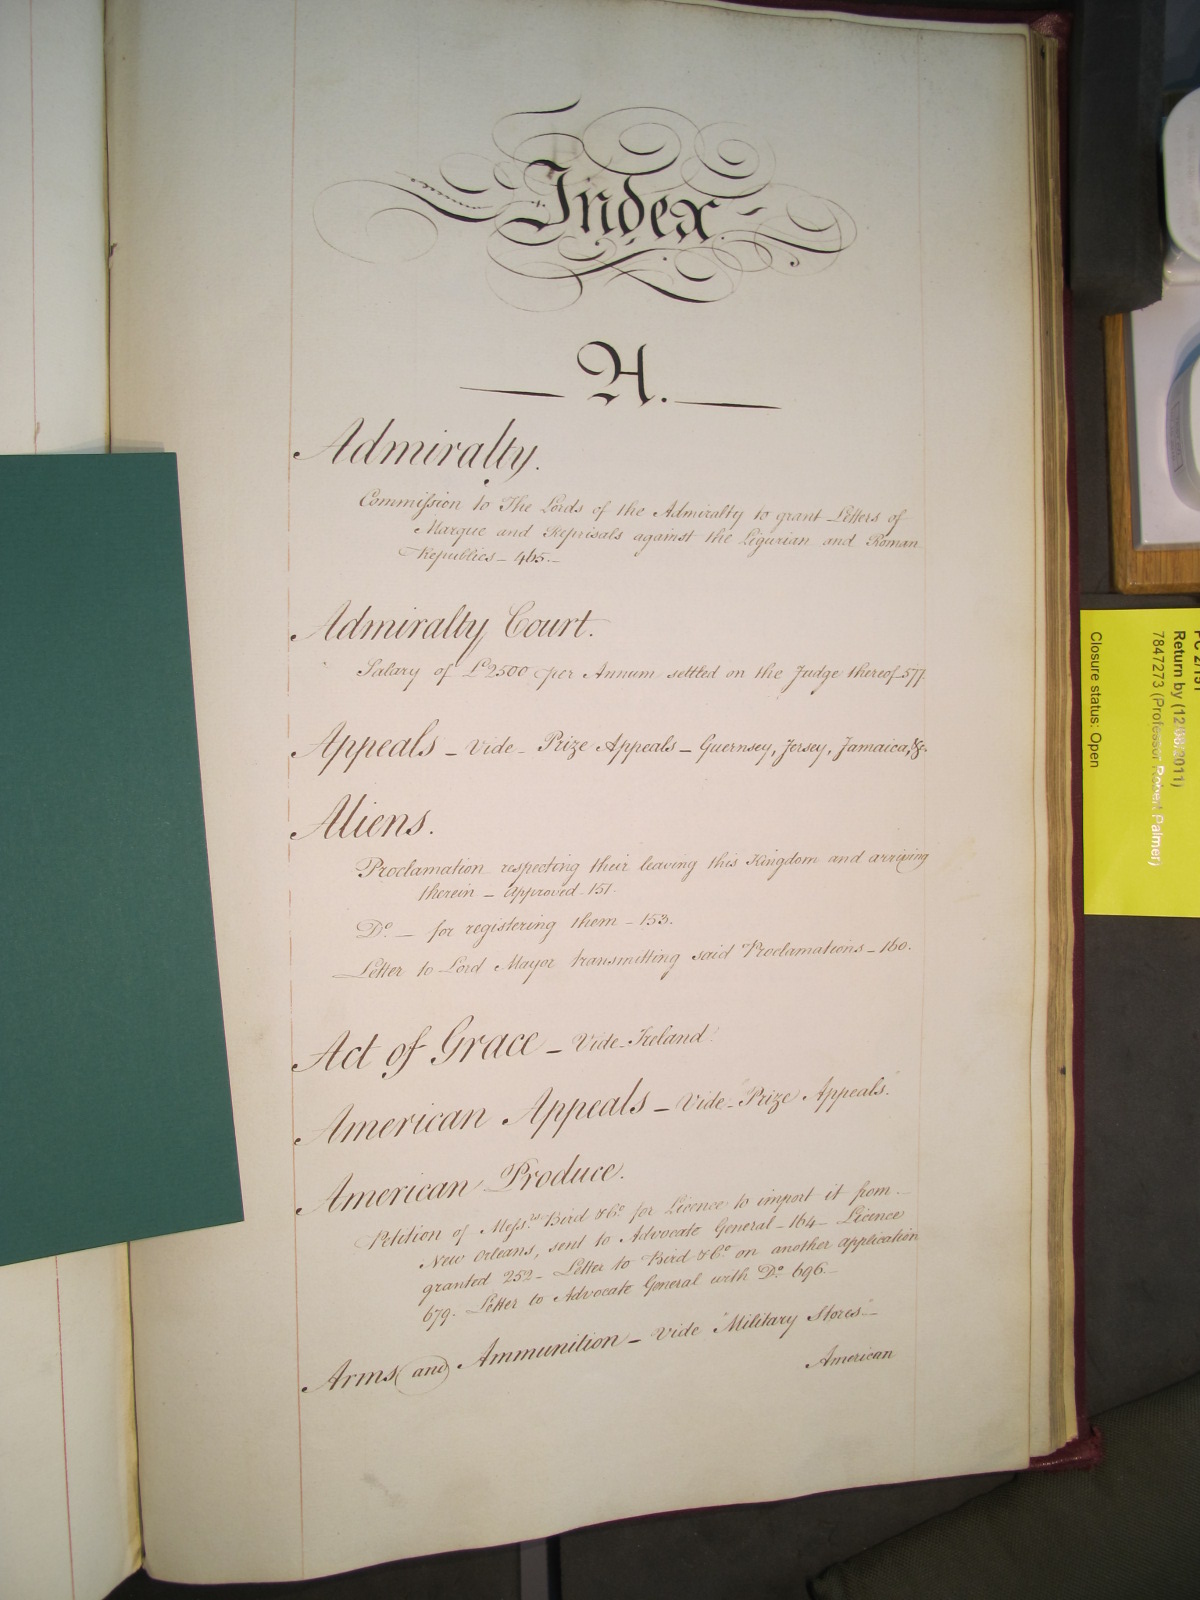 Index
A.
Admiralty.
Commission to The Lords of the Admiralty to grant Letters of
Marque and Reprisals against the Ligurian and Roman
Republics – 465. –
Admiralty Court.
Salary of £2500 per Annum settled on the Judge thereof – 577.
Appeals – Vide – Prize Appeals – Guernsey, Jersey, Jamaica, &c.
Aliens.
Proclamation respecting their leaving this Kingdom and arriving
therein – Approved – 151.
Do. – for registering them – 153.
Letter to Lord Mayor transmitting said Proclamations – 160.
Act of Grace – Vide – Ireland.
American Appeals – Vide – "Prize Appeals."
American Produce.
Petition of Messrs. Bird & Co. for Licence to import it from
New Orleans, sent to Advocate General – 164 – Licence
granted 252 – Letter to Bird & Co. on another application
679. Letter to Advocate General with Do. 696 –
Arms (and) Ammunition – Vide "Military Stores" –
American
PC 2/151
Return by (12/08/2011)
7847273 (Professor Robert Palmer)
Closure status: Open